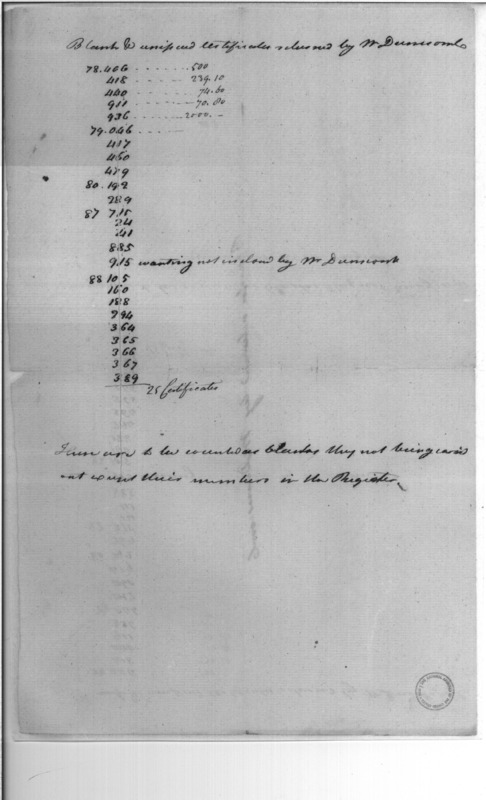 Blank & unissued Certificates returned by Wm Dunscomb
78.466 - - - - - - 500
418 - - - - - 239.10
440 - - - - - 74.60
911 - - - - - 70.80
936 - - - - - 2000.-
79.046 - - - - -
417
460
479
80.192
289
87 715
24
41
885
915 wanting not inclosed by Wm Dunscomb
88 105
160
188
294
364
365
366
367
389
25 Certificates
are to be counted as blanks they not being carried
out except their numbers in the Register